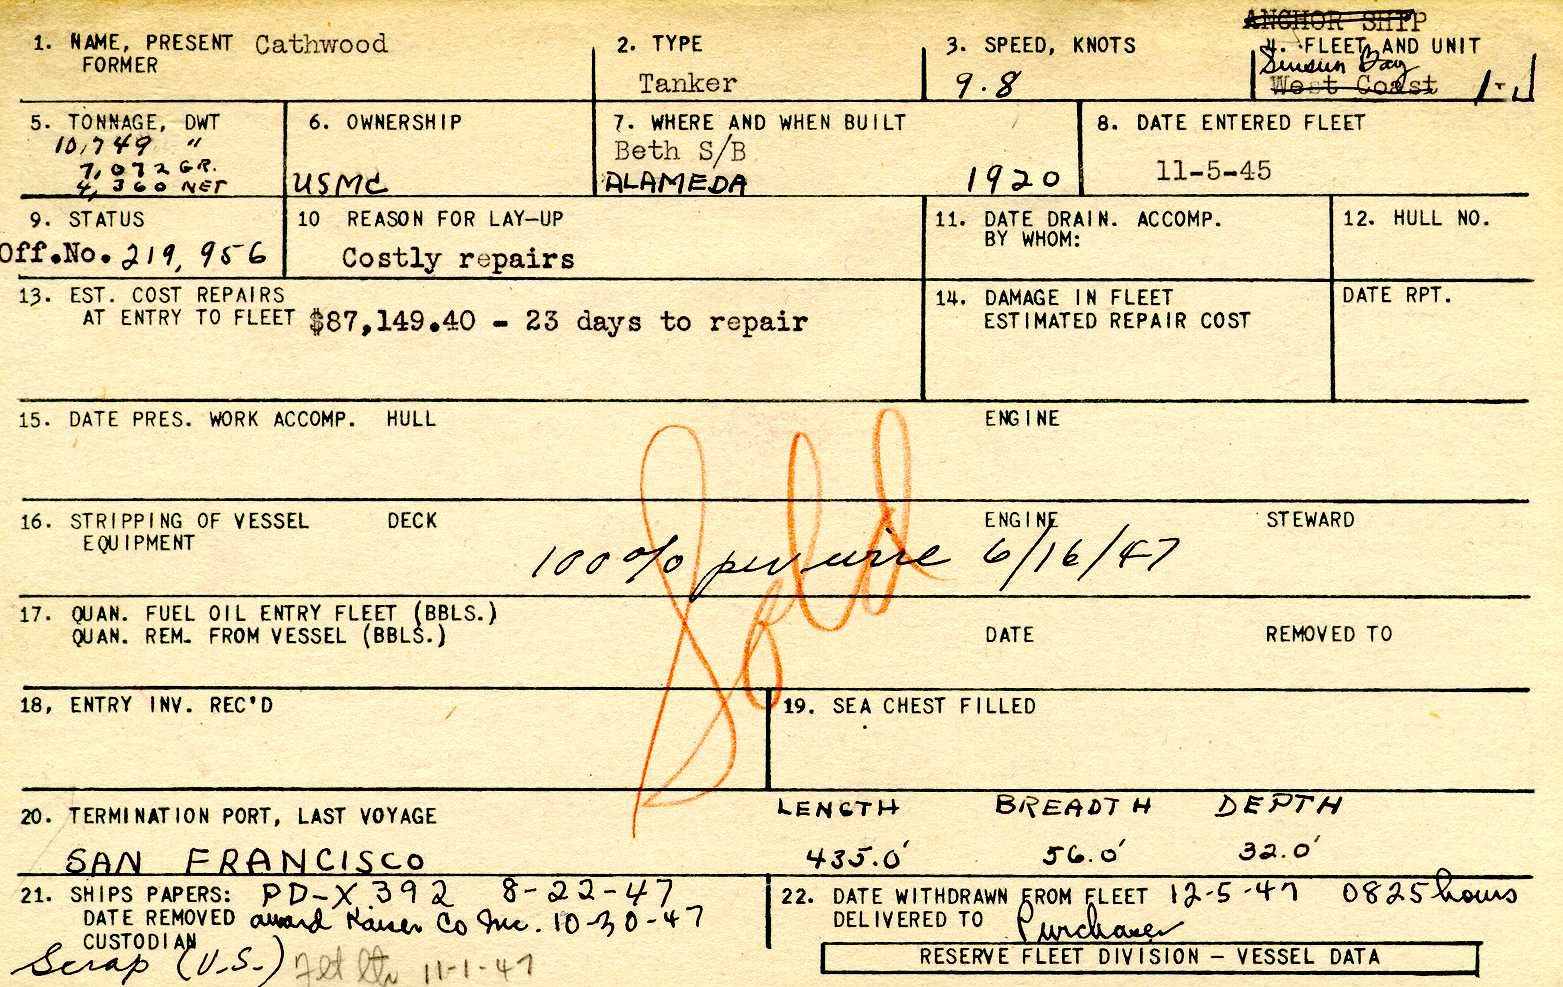 ANCHOR SHIP
1. NAME, PRESENT Cathwood
FORMER
2. TYPE
Tanker
3. SPEED, KNOTS
9.8
4. FLEET AND UNIT
Suisun Bay
West Coast 1-J
5. TONNAGE, DWT
10,749 "
7,072 GR.
4,360 NET
6. OWNERSHIP
USMC
7. WHERE AND WHEN BUILT
Beth S/B
ALAMEDA 1920
8. DATE ENTERED FLEET
11-5-45
9. STATUS
Off.No. 219,956
10 REASON FOR LAY-UP
Costly repairs
11. DATE DRAIN. ACCOMP.
BY WHOM:
12. HULL NO.
13. EST. COST REPAIRS
AT ENTRY TO FLEET $87,149.40 - 23 days to repair
14. DAMAGE IN FLEET
ESTIMATED REPAIR COST
DATE RPT.
15. DATE PRES. WORK ACCOMP. HULL ENGINE
Sold
16. STRIPPING OF VESSEL DECK ENGINE STEWARD
EQUIPMENT
100% per wire 6/16/47
17. QUAN. FUEL OIL ENTRY FLEET (BBLS.)
QUAN. REM. FROM VESSEL (BBLS.) DATE REMOVED TO
18, ENTRY INV. REC'D
19. SEA CHEST FILLED
20. TERMINATION PORT, LAST VOYAGE
SAN FRANCISCO
LENGTH BREADTH DEPTH
435.0' 56.0' 32.0'
21. SHIPS PAPERS: PD-X 392 8-22-47
DATE REMOVED award Kaiser Co Inc. 10-30-47
CUSTODIAN
Scrap (U.S.) 11-1-47
22. DATE WITHDRAWN FROM FLEET 12-5-47 0825 hours
DELIVERED TO Purchaser
RESERVE FLEET DIVISION - VESSEL DATA